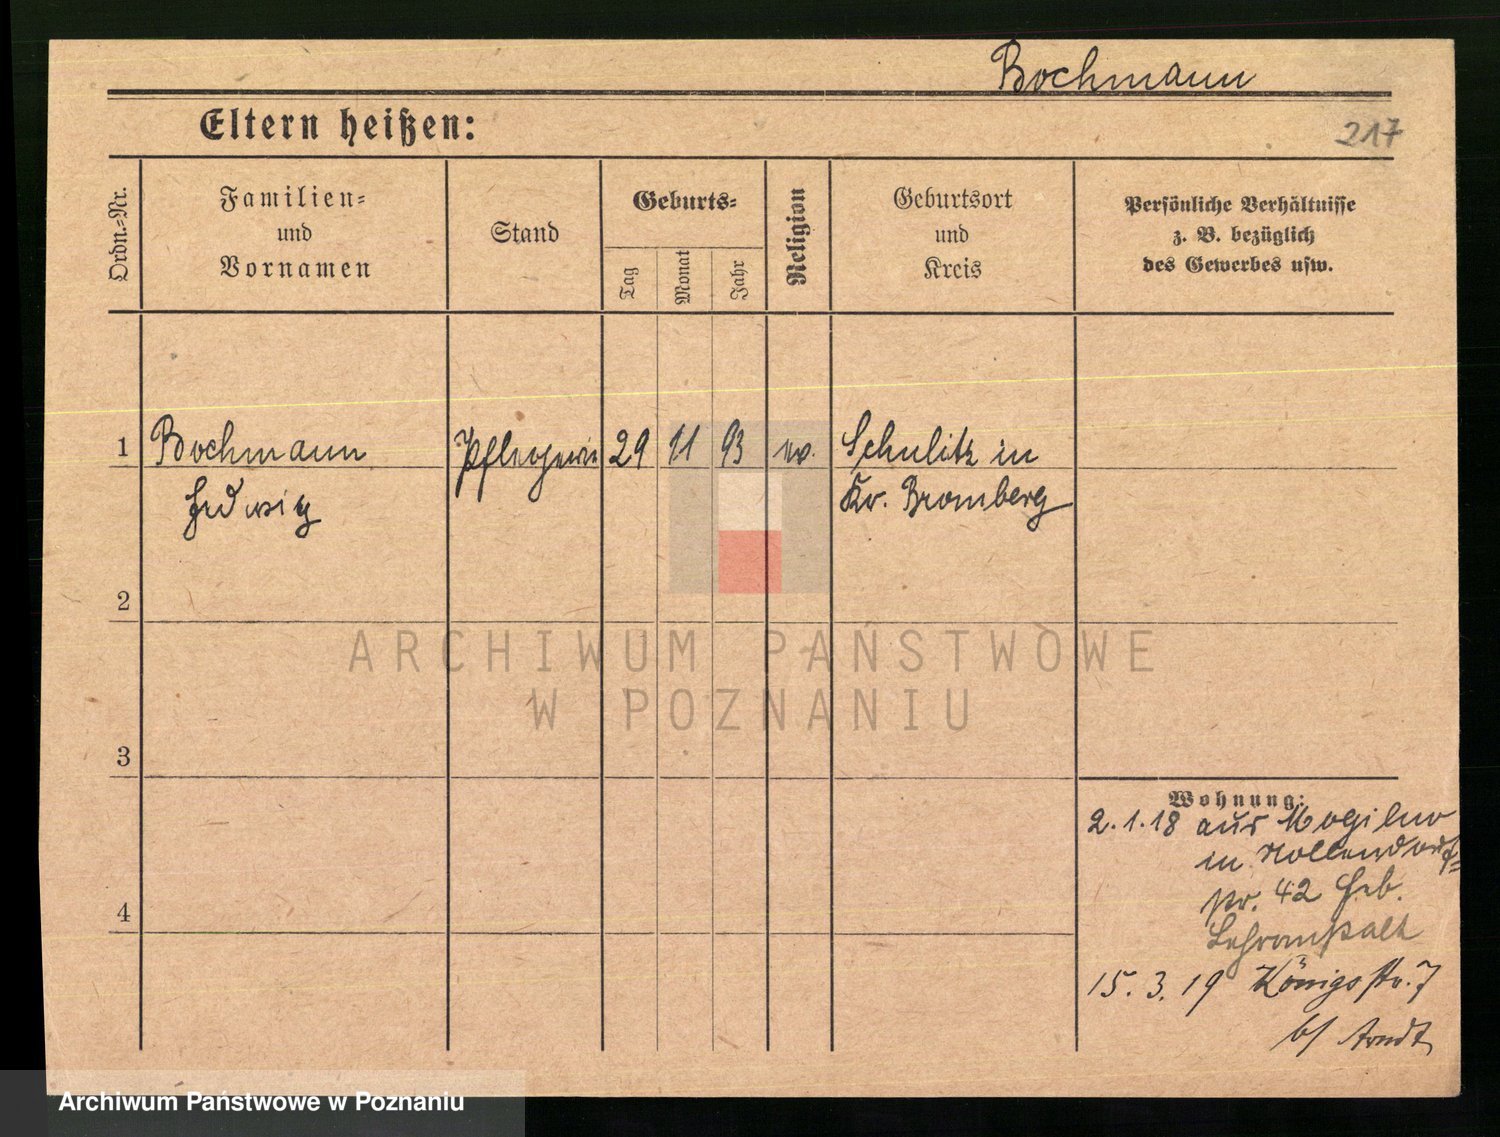 Bochmann
Eltern heißen:
217
Ordn.-Nr.
Familien-
und
Vornamen
Stand
Geburts-
Tag
Monat
Jahr
Religion
Geburtsort
und
Kreis
Persönliche Verhältnisse
z. B. bezüglich
des Gewerbes usw.
1
Bochmann
Hedwig
Pflegerin
29
11
93
ev.
Schulitz in
Kr. Bromberg
2
3
4
Wohnung:
2.1.18 aus Mogilno
in Nollendorf-
str. 42 Heb.
Lehranstalt
15.3.19 Königstr. 7
b/ Arndt
ARCHIWUM PAŃSTWOWE
W POZNANIU
Archiwum Państwowe w Poznaniu